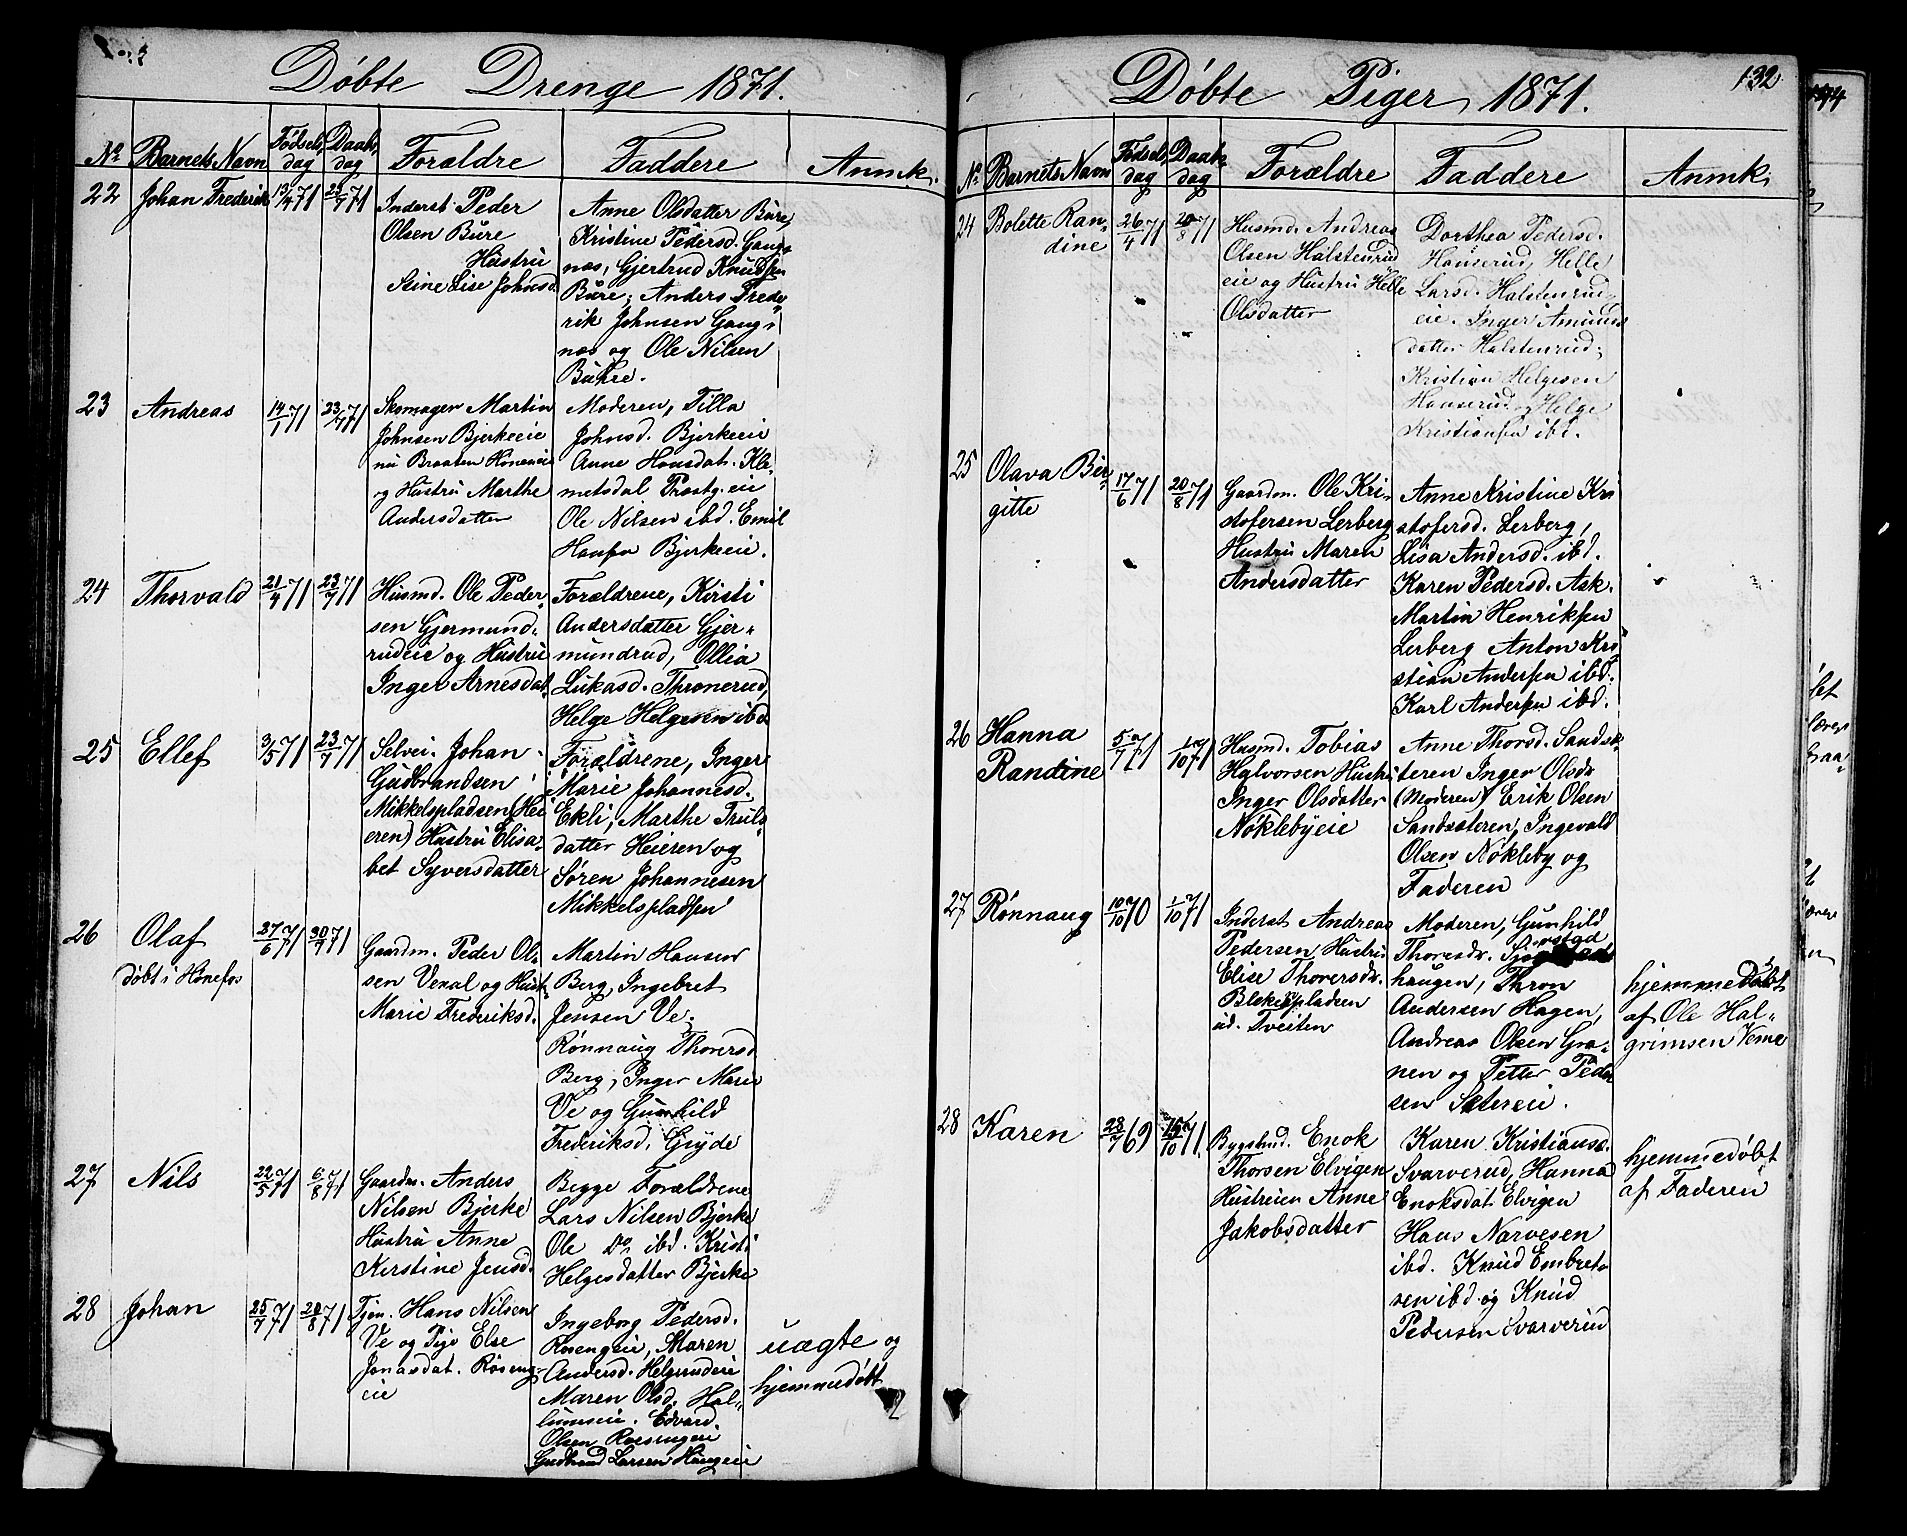 Døbte Drenge 1871.
No Barnets Navn Fødsels dag Daabs dag Forældre Faddere Anmk.
22 Johan Frederik 13/4 71 23/7 71
Inderst Peder
Olsen Bure
Hustru
Stine Lise Johnsd.
Anne Olsdatter Bure,
Kristine Pedersd. Gangs-
næs, Gjertrud Knudsen
Bure, Anders Frede-
rik Johnsen Gangs-
næs og Ole Nilsen
Buhre.
23 Andreas 14/1 71 23/7 71
Skomager Martin
Johnsen Bjerkeeie
nu Braaten Høneneie
og Hustru Marthe
Andersdatter
Moderen, Tilla
Johnsd. Bjerkeeie
Anne Hansdat. Kle-
metsdal Præstg. eie
Ole Nilsen ibd. Emil
Hansen Bjerkeeie.
24 Thorvald 21/4 71 23/7 71
Husmd. Ole Peder-
sen Gjermund-
rudeie og Hustru
Inger Arnesdat.
Forældrene, Kirsti
Andersdatter Gjer-
mundrud, Ollia
Lukasd. Thronerud,
Helge Helgesen ibd.
25 Ellef 3/5 71 23/7 71
Selvei. Johan
Gudbrandsen
Mikkelspladsen (Hei-
eren) Hustru Elisa-
bet Syversdatter
Forældrene, Inger
Marie Johannesd.
Ekli, Marthe Truls-
datter Heieren og
Søren Johannesen
Mikkelspladsen
26 Olaf 27/6 71 30/7 71
døbt i Hønefos
Gaardm. Peder Ol-
sen Venal og Hust.
Marie Frederiksd.
Martin Hansen
Berg, Ingebret
Jensen Ve,
Rønnaug Thoversd
Berg, Inger Marie
Ve og Gunhild
Frederiksd. Gujde
27 Nils 22/5 71 6/8 71
Gaardm. Anders
Nilsen Bjerke
Hustru Anne
Kerstine Jensd.
Begge Forældrene
Lars Nilsen Bjerke
Ole Do ibd. Kristi
Helgesdatter Bjerke
28 Johan 25/7 71 20/8 71
Tjen. Hans Nilsen
Ve og Pige Else
Jonasdat. Roseng-
eie
Ingeborg Pedersd.
Rosengeie, Maren
Andersd. Helgerudeie
Maren Olsd. Hal-
lumseie. Edvard
Olsen Rosengeie
Gudbrand Larsen Haugeie
uægte og
hjemmedøbt
Døbte Piger 1871.
132
No Barnets Navn Fødsels dag Daabs dag Forældre Faddere Anmk.
24 Bolette Ran-
dine 26/4 71 20/8 71
Husmd. Andreas
Olsen Halstenrud
eie og Hustru Helle
Olsdatter
Dorthea Pedersd.
Hauserud, Helle
Larsd. Halstenrud-
eie. Inger Amunds
datter Halstenrud,
Kristian Helgesen
Hauserud og Helge
Kristiansen ibd.
25 Olava Bir-
gitte 17/6 71 20/8 71
Gaardm. Ole Kri-
stofersen Lerberg
Hustru Maren
Andersdatter
Anne Kristine Kri
stofersd. Lerberg,
Lisa Andersd. ibd.
Karen Pedersd. Ask.
Martin Henriksen
Lerberg Anton Kri
stian Andersen ibd.
Karl Andersen ibd.
26 Hanna
Randine 5/7 71 1/10 71
Husmd. Tobias
Halvorsen Hustru
Inger Olsdatter
Nøklebyeie
Anne Thorsd. Sands-
teren Inger Olsdr
(Moderen) Erik Olsen
Sandsteren, Ingevald
Olsen Nøkleby og
Faderen
27 Rønnaug 10/10 70 1/10 71
Inderst Andreas
Pedersen, Hustru
Elise Thoversdr.
Blekepladsen
ud. Tveiten
Moderen, Gunhild
Thoresdr.
haugen, Thron
Andersen Hagen,
Andreas Olsen Gra-
nen og Petter Peder
sen Setereie.
hjemmedøbt
af Ole Hal-
grimsen Veme
28 Karen 28/7 69 15/10 71
Bygslmd. Enok
Thorsen Elvigen
Hustruen Anne
Jakobsdatter
Karen Kristiansd.
Svarverud, Hanna
Enoksdat Elvigen
Hans Narvesen
ibd. Knud Embret-
sen ibd. og Knud
Pedersen Svarverud
hjemmedøbt
af Faderen